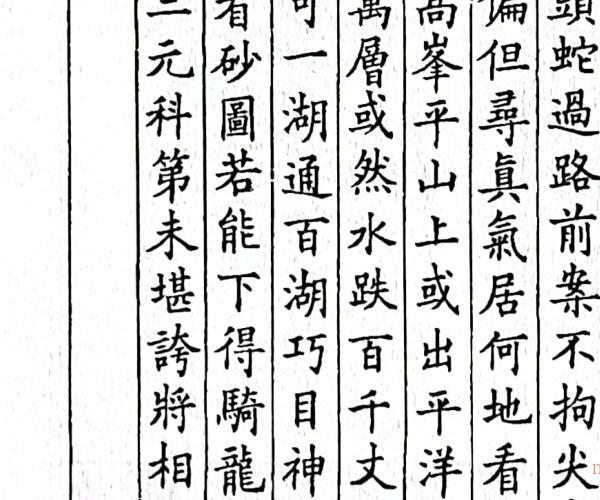 頭蛇過路前案不拘尖
偏但尋眞氣居何地看
高峯平山上或出平洋
萬層或然水跌百千丈
可一湖通百湖巧目神
看砂圖若能下得騎龍
元科第未堪誇將相